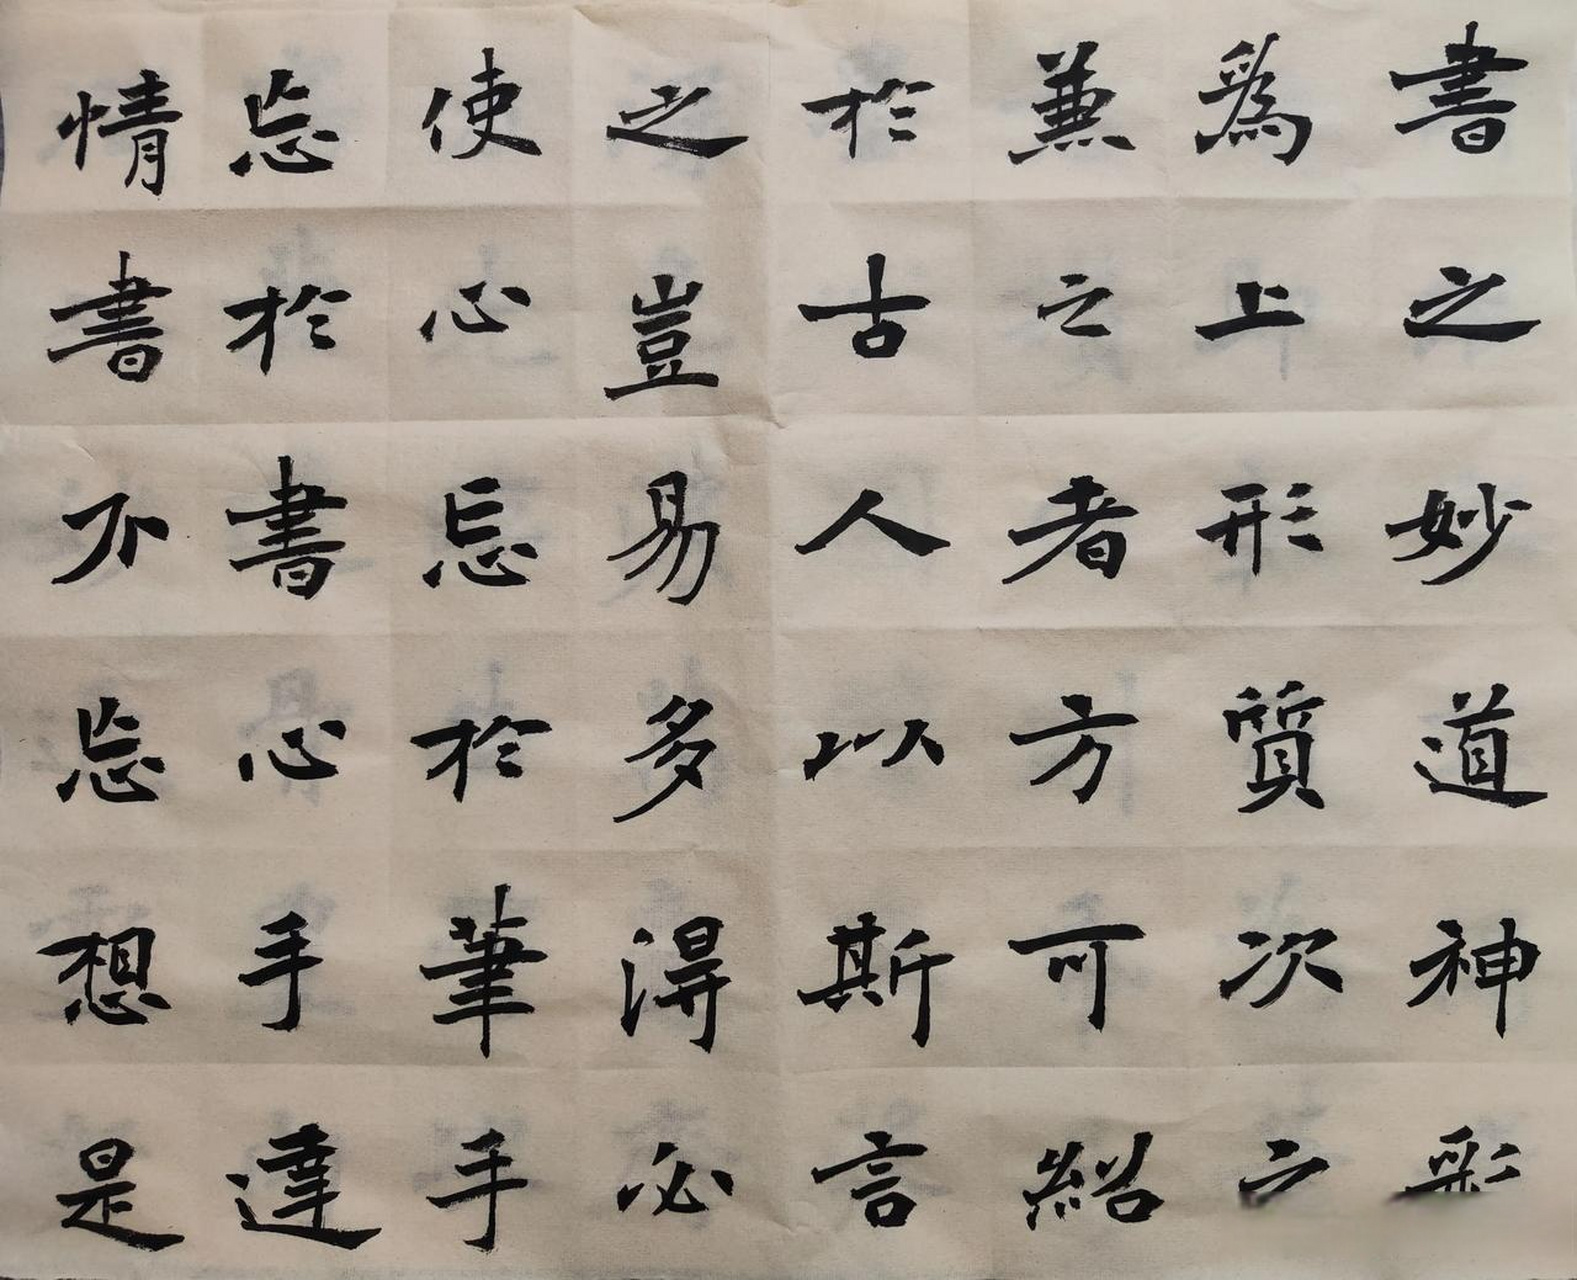 書之妙道神彩
爲上形質次之
兼之者方可紹
於古人以斯言
之豈易多得必
使心忘於筆手
忘於書心手達
情書不忘想是